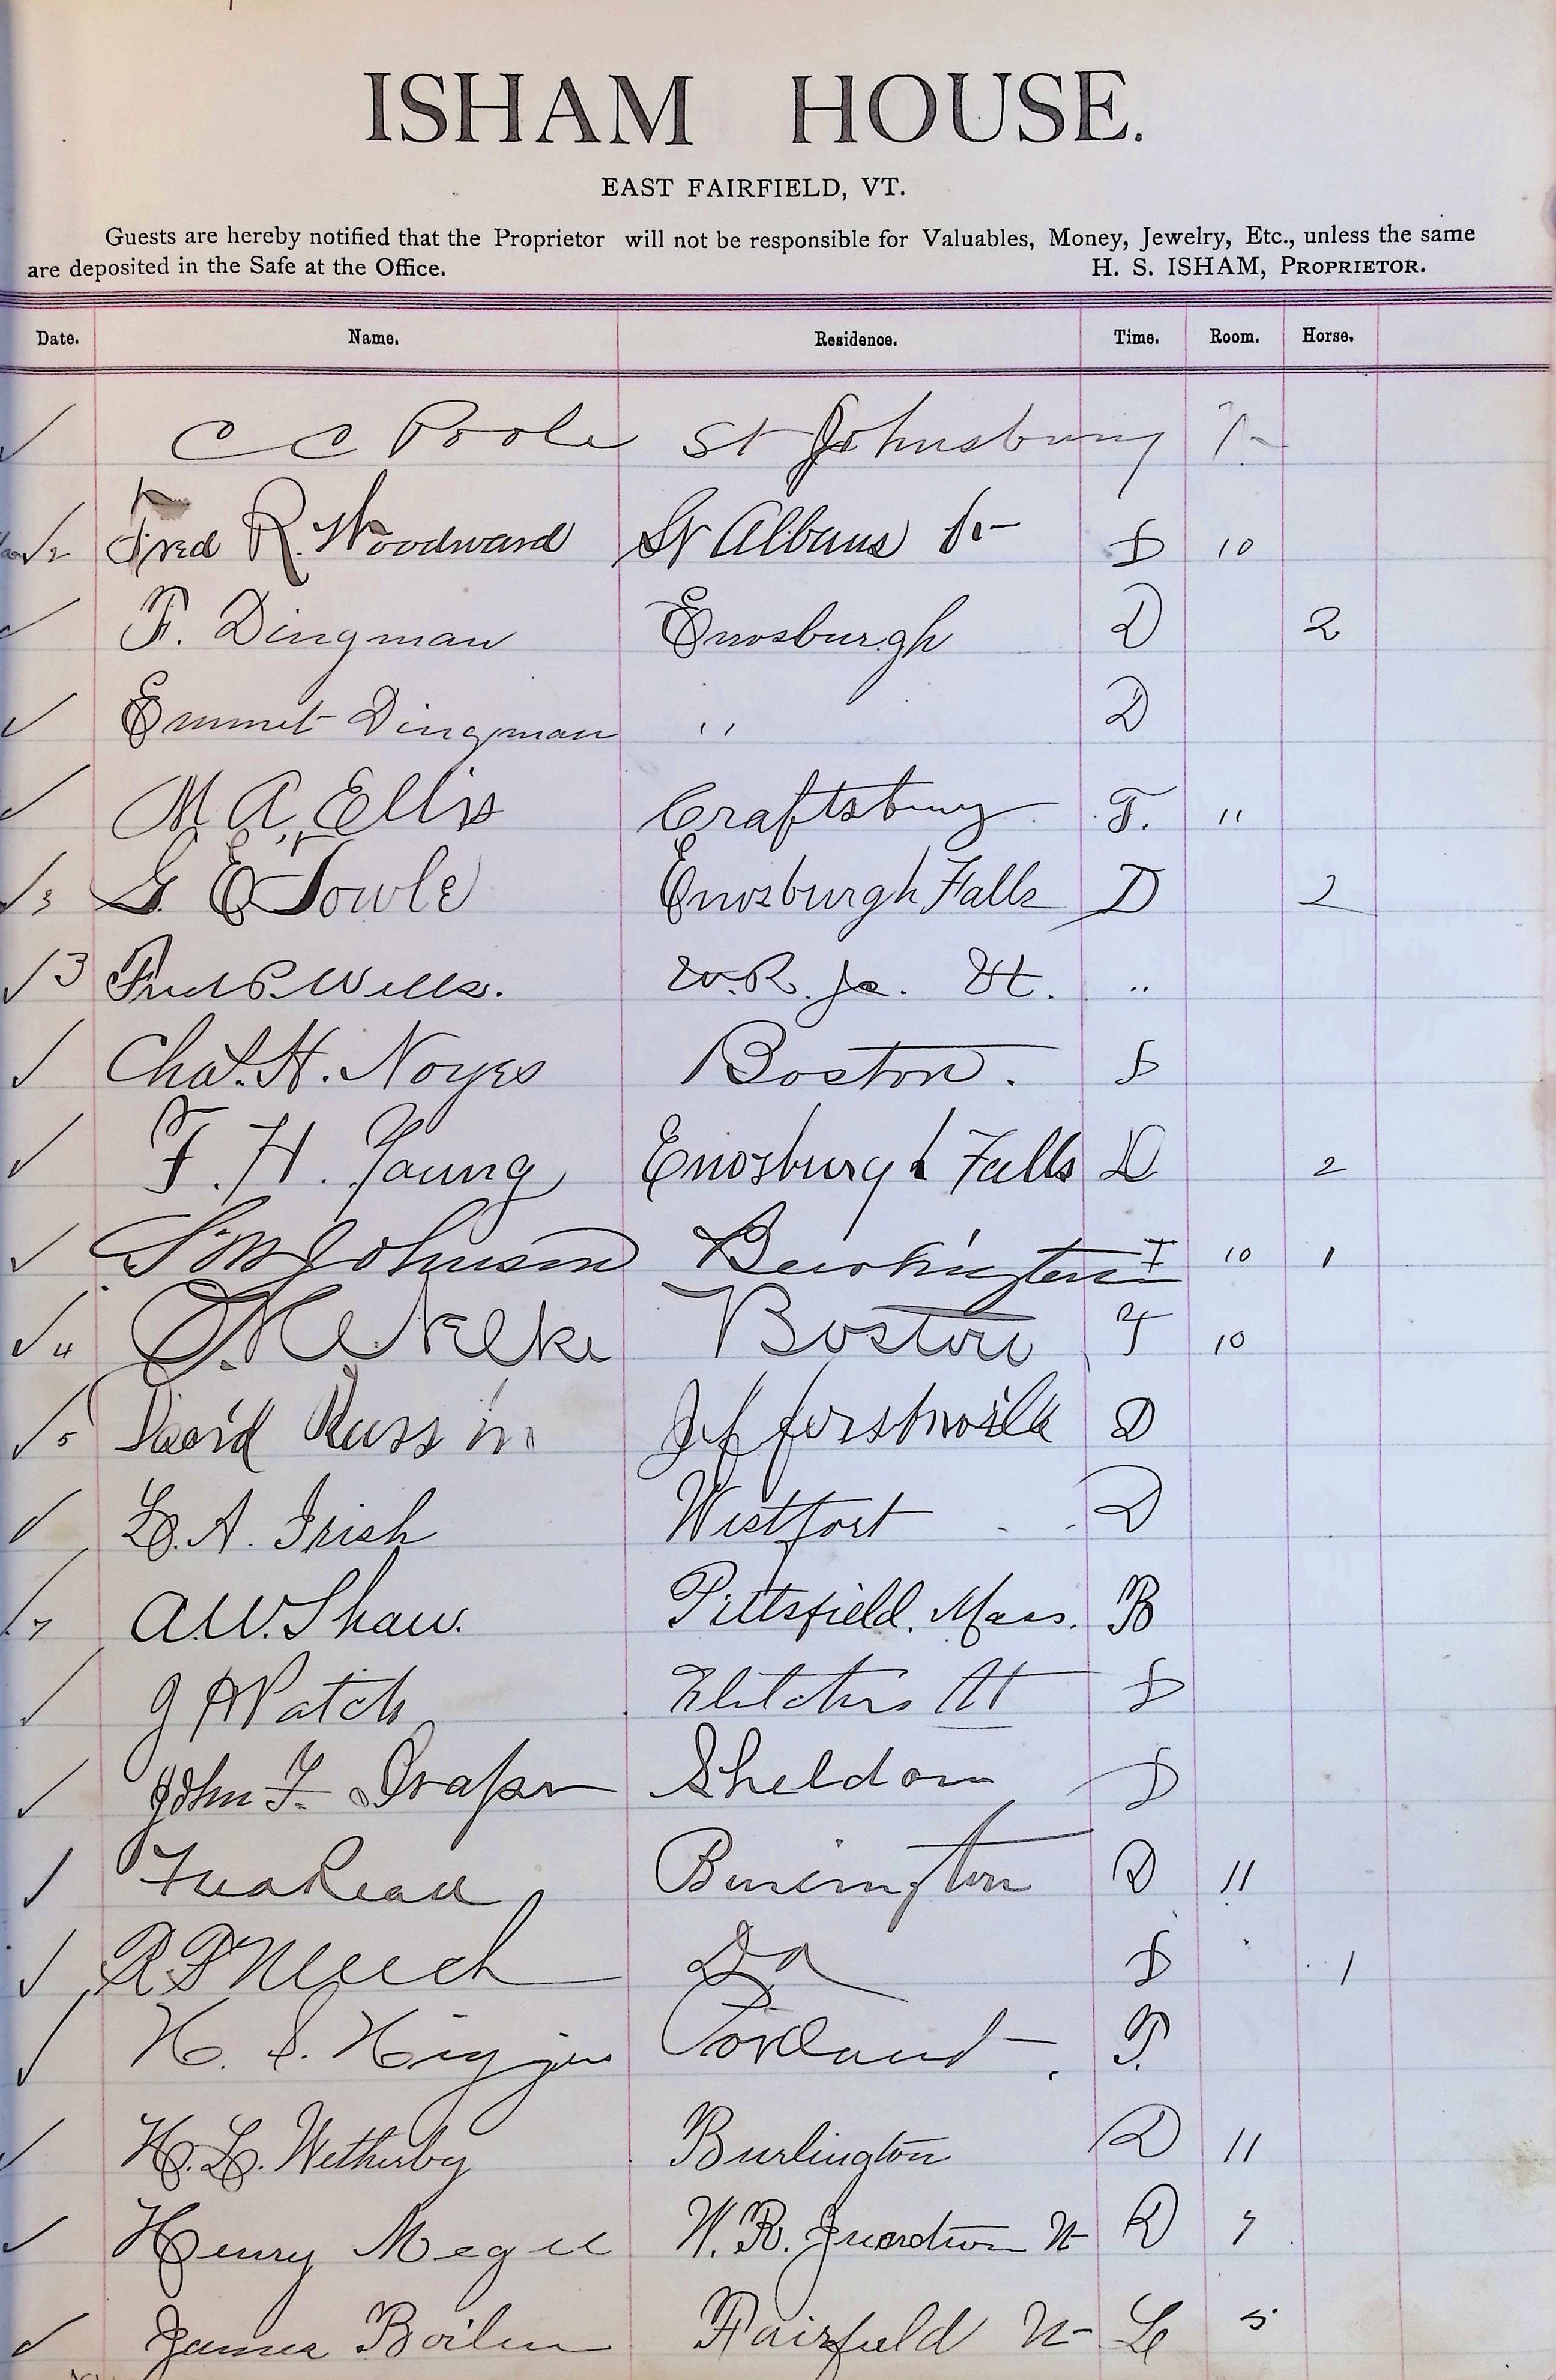 ISHAM HOUSE.
EAST FAIRFIELD, VT.
Guests are hereby notified that the Proprietor will not be responsible for Valuables, Money, Jewelry, Etc., unless the same
are deposited in the Safe at the Office. H. S. ISHAM, PROPRIETOR.
Date. Name. Residence. Time. Room. Horse.
✓ C C Poole St Johnsbury 7
✓ 2 Fred R. Woodward St Albans Vt S 10
✓ F. Dingman Enosburgh D 2
✓ Emmet Dingman " D
✓ M A, Ellis Craftsbury T. 11
✓ 3 G. E Towle Enosburgh Falls D 2
✓ 3 Fred P. Wells. W.R. Jc. Vt. "
✓ Chas. H. Noyes Boston. S
✓ F. H. Young Enosburgh Falls D 2
✓ S M Johnson Burlington T 10 1
✓ 4 Boston T 10
✓ 5 David Jeffersonville D
✓ L. A. Irish Westfort D
✓ 7 A.W. Shaw. Pittsfield. Mass. B
✓ J H Patch Vt S
✓ John F. Draper Sheldon S
✓ Burlington D 11
✓ R F Meech Do S 1
✓ H. S. Higgins Portland. T.
✓ H. L. Wetherby Burlington D 11
✓ Henry Megee W. R. Vt D 7
✓ James Fairfield Vt L 5